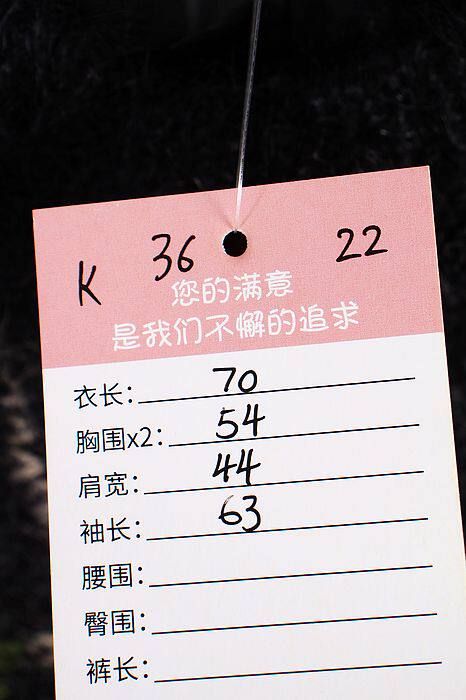 K 36 22
您的满意
是我们不懈的追求
衣长: 70
胸围x2: 54
肩宽: 44
袖长: 63
腰围:
臀围:
裤长: